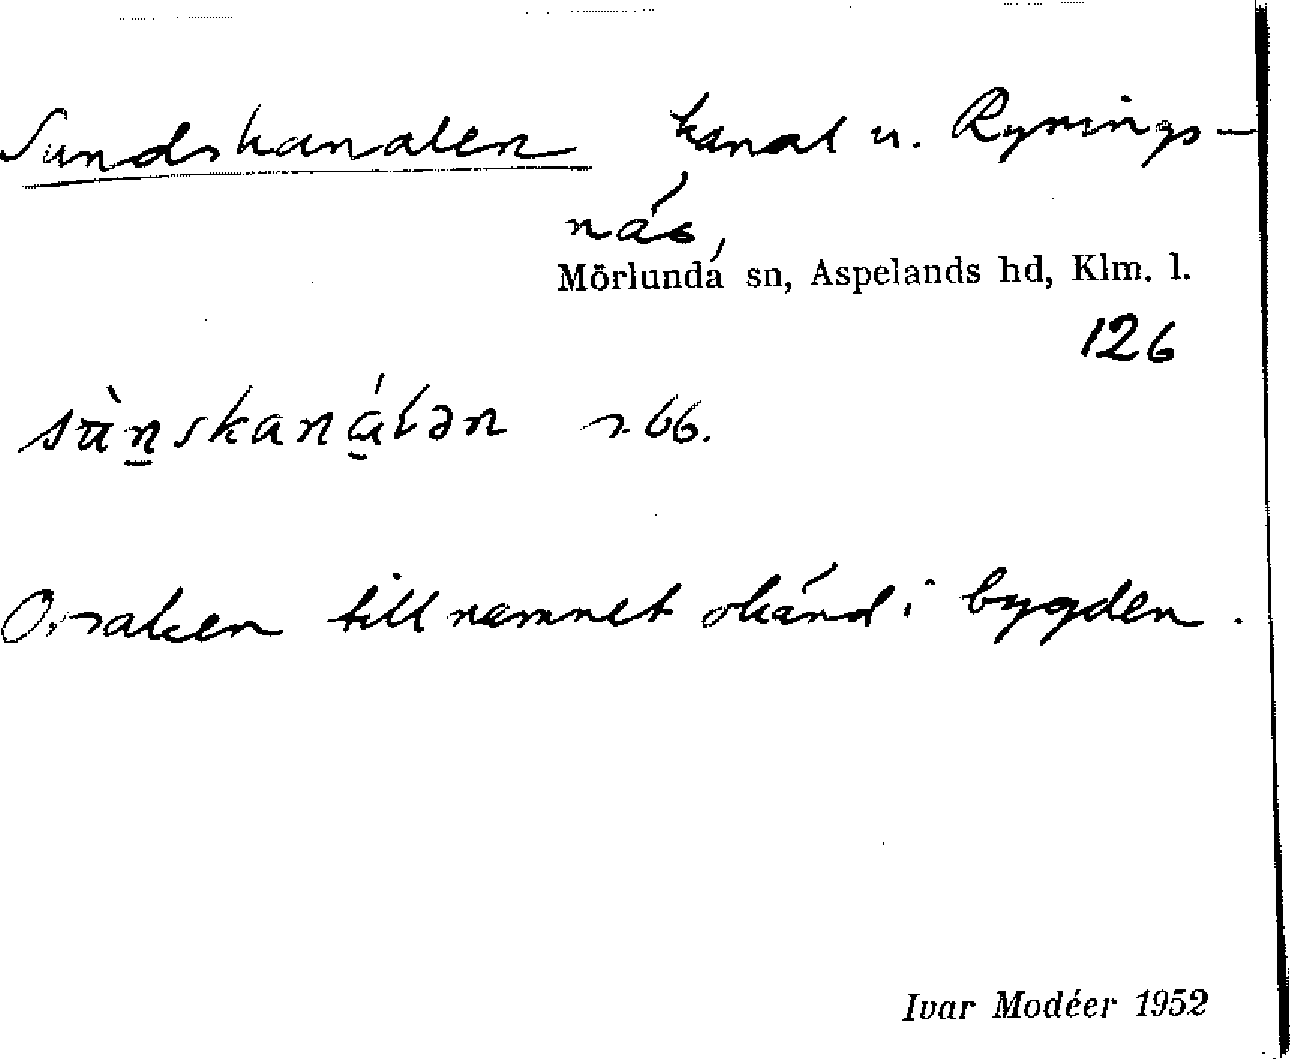 Sundskanalen kanal u. Rynings-
näs,
Mörlunda sn, Aspelands hd, Klm. l.
126
sùn̠skanálən r 66.
Orsaken till namnet okänd i bygden.
Ivar Modéer 1952